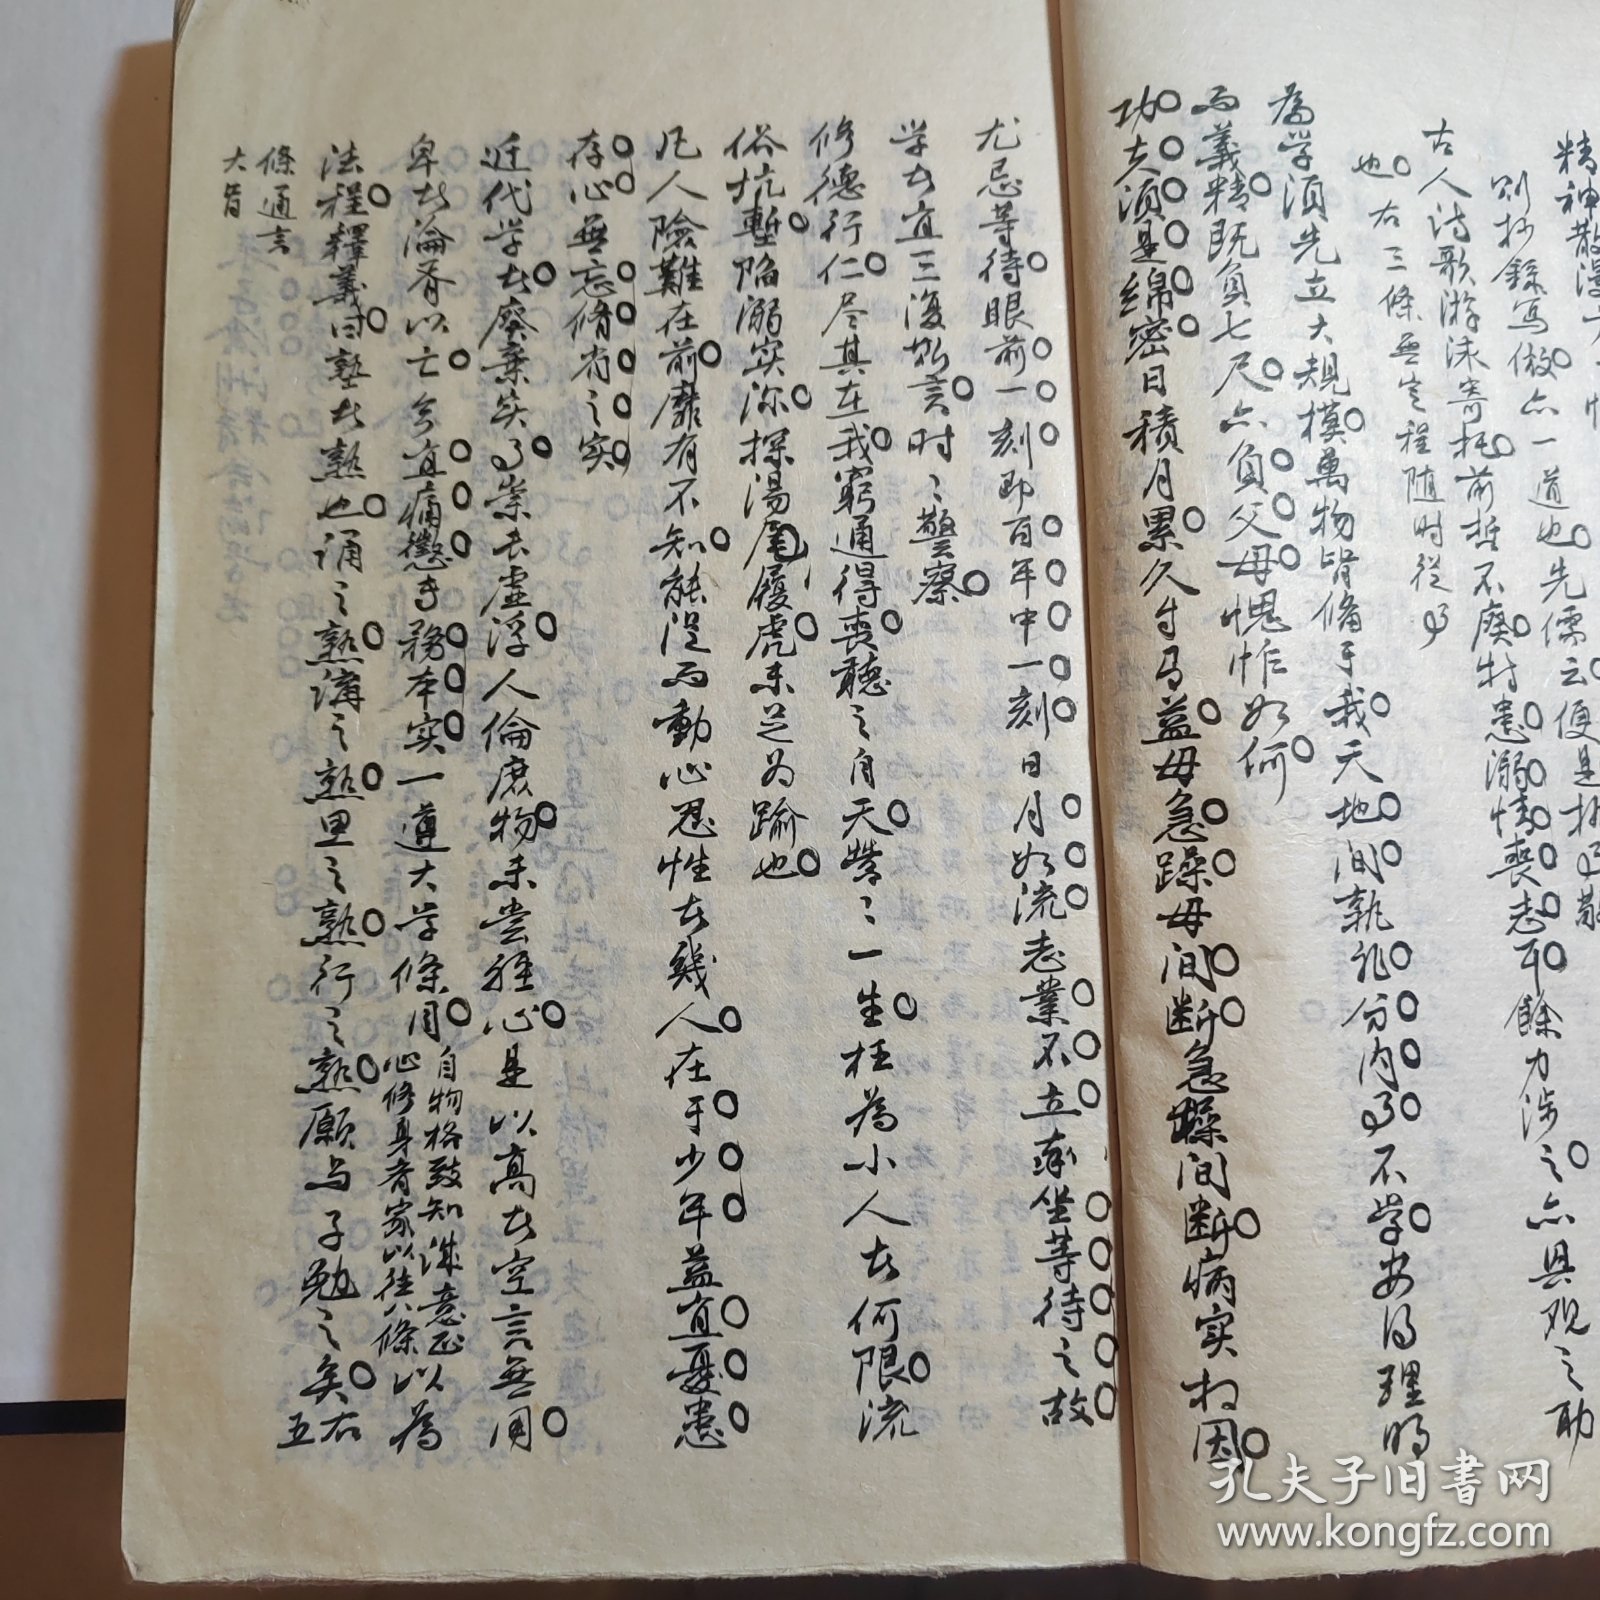 精神散漫
則抄錄寫倣亦一道也先儒云便是執事敬
古人詩歌游泳寄托前哲不廢特患溺情喪志耳餘力涉之亦興觀之助
也右三條無定程隨時從事
為学須先立大規模萬物皆備于我天地间孰非分内事不学安得理明
而義精既負七尺亦負父母愧怍如何
功夫須是綿密日積月累久自有益毋急躁毋间断急躁间断病实相因
尤忌等待眼前一刻即百年中一刻日月如流志業不立率坐等待之故
学者宜三復斯言时々警察
修德行仁尽其在我窮通得喪聽之自天営々一生枉為小人者何限流
俗坑塹陷溺实深探湯履虎未足为踰也
凡人險難在前靡有不知能從而動心忍性者幾人在于少年益宜憂患
存心無忘脩省之实
近代学者廢棄实事崇尚虚浮人倫庶物未尝經心是以高者空言無用
卑者淪胥以亡今宜痛懲专務本实一遵大学條目
自物格致知誠意正
心修身齊家以往八條
以為
法程釋義曰塾者熟也誦之熟講之熟思之熟行之熟願与子勉之矣
右五
條通言
大旨
孔夫子旧書网
www.kongfz.com